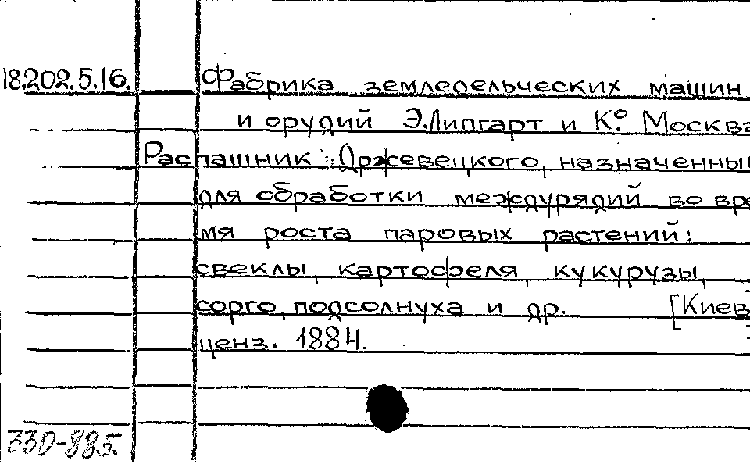 18.202.5.16. Фабрика земледельческих машин
и орудий Э.Липгарт и Кº Москва
Распашник Држевецкого, назначенный
для обработки междурядий во вре
мя роста паровых растений:
свеклы, картофеля, кукурузы,
сорго, подсолнуха и др. [Киев
ценз. 1884.
330-885.